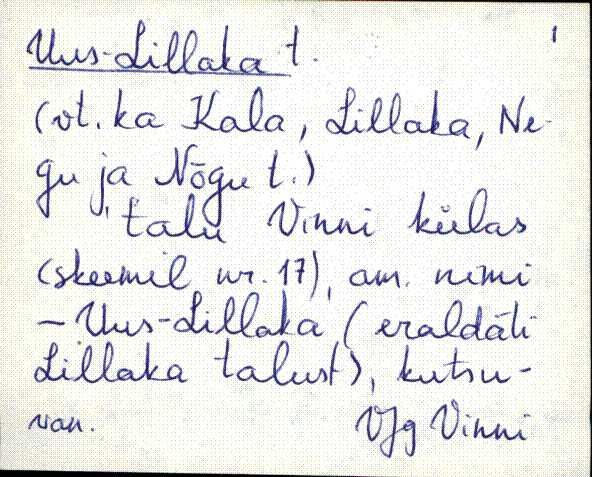 1
Uus-Lillaka t.
(vt. ka Kala, Lillaka, Ne-
gu ja Nõgu t.)
talu Vinni külas
(skeemil nr. 17), am. nimi
- Uus-Lillaka (eraldati
Lillaka talust), kutsu-
van. VJg Vinni